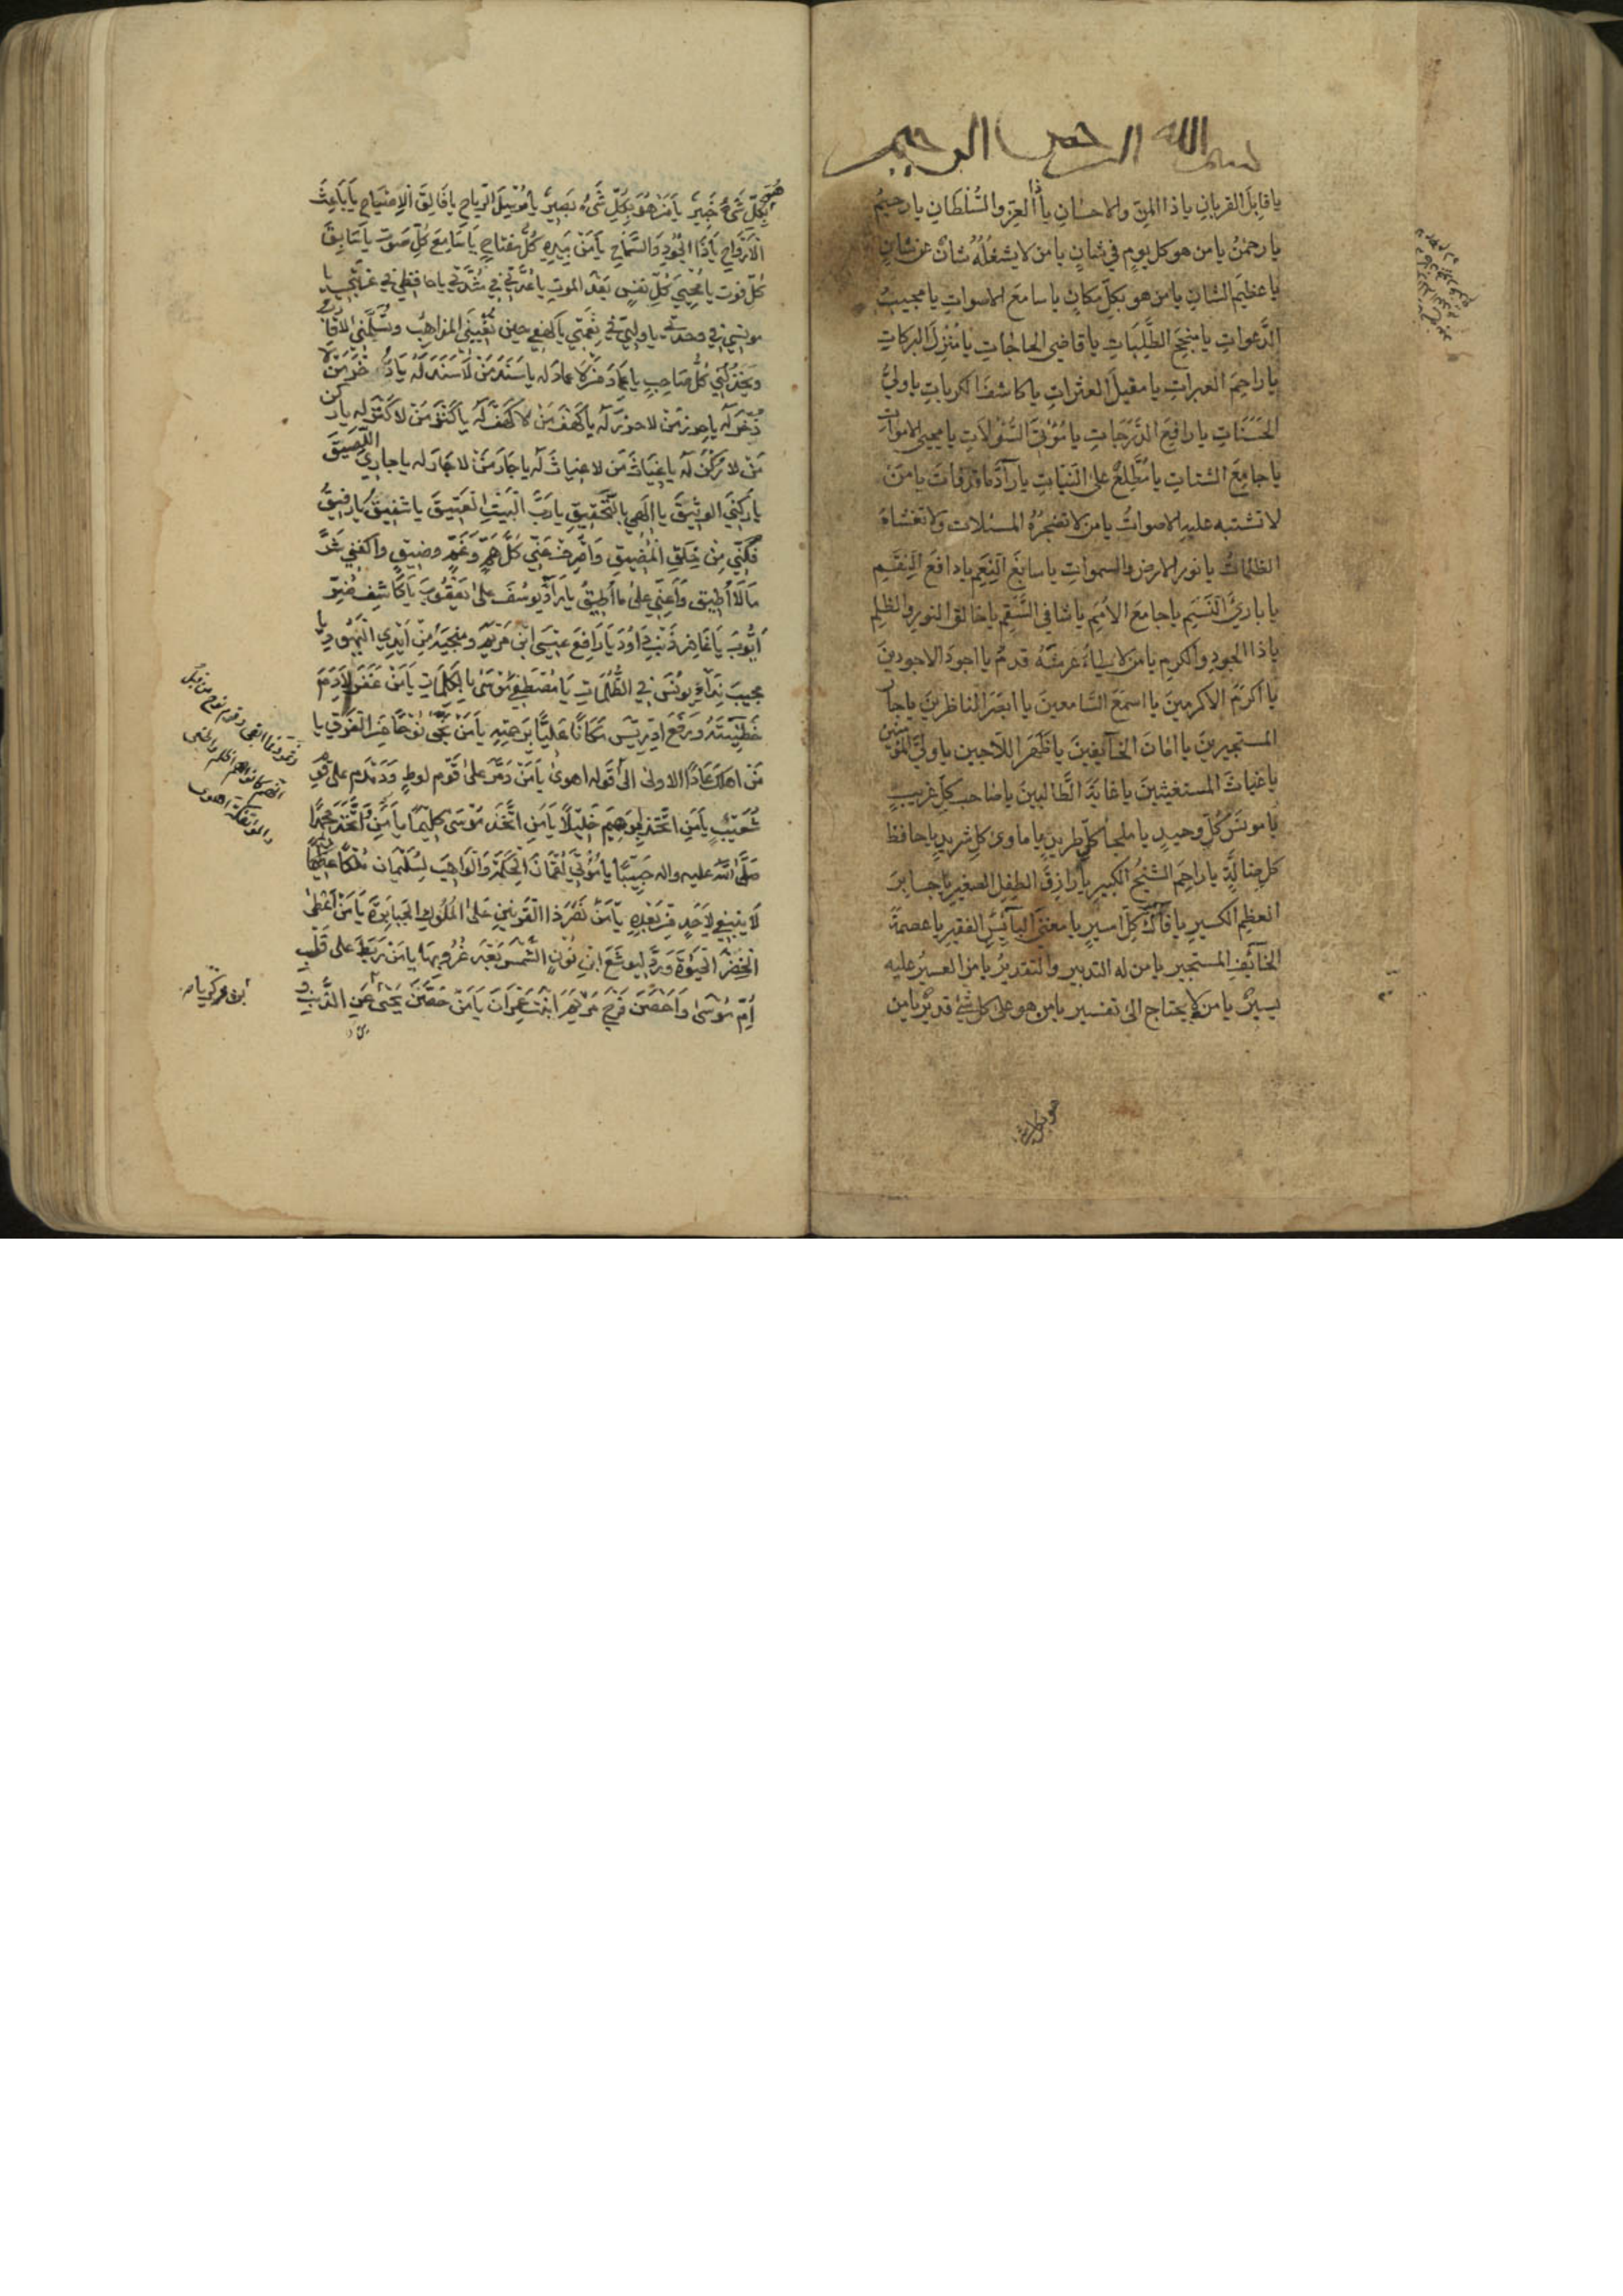 بسم الله الرحمن الرحيم
يا قابِلَ القربانِ يا ذا المنِّ والاحسانِ يا ذا العِزِّ والسُّلْطَانِ يا رحيمُ
يا رحمٰنُ يا من هو كل يومٍ في شانٍ يا من لا يشغلُهُ شانٌ عن شانٍ
يا عظيمَ الشانِ يا من هو بكلِّ مكانٍ يا سامعَ الاصواتِ يا مجيبَ
الدَّعواتِ يا منجِحَ الطَّلِبَاتِ يا قاضيَ الحاجاتِ يا مُنْزِلَ البركاتِ
يا راحِمَ العبراتِ يا مقيلَ العثراتِ يا كاشفَ الكرباتِ يا وليَّ
الحَسَنَاتِ يا رافِعَ الدَّرَجَاتِ يا مُؤْتِيَ السُّؤلاتِ يا محييَ الاموات
يا جامِعَ الشتاتِ يا مُطَّلِعُ على النياتِ يا رآدَّ ما قد فات يا من
لا تشتبه عليه الاصواتُ يا من لا تضجرُهُ المسئلات ولا تغشاهُ
الظلماتُ يا نور الارض والسموات يا سابغَ النِّعَمِ يا دافعَ النِّقَمِ
يا بارئَ النَّسَمِ يا جامعَ الاُمَمِ يا شافي السَّقَمِ يا خالق النور والظلم
يا ذا الجودِ والكرم يا من لا يطاءُ عرشَهُ قدمٌ يا اجودَ الاجودينَ
يا اكرَمَ الاكرمينَ يا اسمَعَ السَّامعينَ يا ابصَرَ الناظرينَ يا جار
المستجيرينَ يا امانَ الخآئِفينَ يا ظَهَرَ اللّاجين يا وليَّ المؤمنين
يا غياثَ المستغيثينَ يا غايَةَ الطَّالبينَ يا صاحب كلِّ غريبٍ
يا مونسَ كُلِّ وحيدٍ يا ملجأَ كلِّ طريدٍ يا ماوى كلِّ شريدٍ يا حافظ
كل ضالَّةٍ يا راحِمَ الشيخِ الكبيرِ يا رازِقَ الطِفلِ الصغيرِ يا جابرَ
العظم الكسيرِ يا فآكَّ كلِّ اسيرٍ يا مغنيَ البآئِسِ الفقيرِ يا عصمةَ
الخآئفِ المستجير يا من له التدبير والتقديرُ يا من العسيرُ عليه
يسيرٌ يا من لا يحتاج الى تفسير يا من هو على كل شئٍ قديرٌ يا من
هو بكل شئ
هُوَ بِكُلِّ شَئٍ خَبِيرٌ يَا مَنْ هُوَ بِكُلِّ شَئٍ بَصِيرٌ يا مُرْسِلَ الرِّياحِ يا فَالِقَ الاِصْبَاحِ يَا بَاعِثَ
الاَرْوَاحِ يَا ذَا الجُودِ وَالسَّمَاحِ يَا مَنْ بِيَدِهِ كُلُّ مِفتاحٍ يَا سَامِعَ كُلِّ صَوتٍ يَا سَابِقَ
كُلِّ فوت يا مُحْيِيَ كُلِّ نفسٍ بَعْدَ الموتِ يا عُدَّتي في شدَّتي يا حافظي في غربتي يا
مونسي في وحدتي يا وليّي في نعمتي يا كهفي حين تُعْيِينِي المذاهِبُ وتُسَلِّمُني الاقارب
ويَخْذُلُني كُلُّ صَاحِبٍ يا عِمَادَ مَنْ لا عِمادَ لَه يا سَنَدَ مَنْ لَا سَنَدَ لَهُ يا ذُخْرَ مَنْ لا
ذُخْرَ لَه يا حِرزَ مَنْ لا حرزَ لَه يا كَهْفَ مَنْ لا كَهْفَ لَه يا كَنْزَ مَنْ لا كَنْزَ لَه يا ركن
مَنْ لا رُكْنَ لَه يا غِيَاثَ مَن لا غياثَ لَه يا جَارَ مَنْ لا جَارَ لَه يا جاريَ اللَّصِيقَ
يا رُكْنِيَ الوثيقَ يا اِلٰهي بالتَّحْقِيقِ يا رَبَّ الْبَيْتِ العَتِيقِ يا شَفِيقُ يا رَفِيقُ
فُكَّنِي مِنْ حَلَقِ الْمَضِيقِ وَاصْرِفْ عَنِّي كُلَّ هَمٍّ وَغَمٍّ وضيقٍ واكفني شَرَّ
مَا لَا اُطِيقُ وَاَعِنِّي على ما اُطِيقُ يا رَآدَّ يُوسُفَ على يَعْقُوبَ يا كَاشِفَ ضُرِّ
اَيُّوبَ يَا غَافِرَ ذَنْبِ دَاوُدَ يَا رَافِعَ عِيسَى ابْنِ مَرْيَمَ ومنجيَهُ مِنْ اَيْدِي الْيَهُودِ يا
مجيبَ نِدَآءِ يونُسَ في الظُّلُمَاتِ يَا مُصْطَفِيَ مُوسَى بالْكَلِمَاتِ يَا مَنْ غَفَرَ لِاٰدَمَ
خَطِيئَتَهُ وَرَفَعَ اِدْرِيسَ مَكَانًا عَلِيًّا بِرَحْمَتِهِ يَا مَنْ نَجَّى نُوحًا مِنَ الْغَرَقِ يا
مَنْ اهلك عَادًا الاولى الى قوله اهوى يا مَنْ دَمَّرَ على قَوْمِ لوطٍ وَدَمْدَمَ على قوم
شُعَيْبٍ يا مَنِ اتَّخَذَ اِبْرَهِيمَ خَلِيلًا يَا مَنِ اتَّخَذَ مُوسَى كليمًا يا مَنِ وَاتَّخَذَ مُحَمَّدًا
صَلَّى اللهُ عليه واله حَبِيبًا يا مُؤْتِيَ لُقْمَانَ الْحِكْمَةَ وَالْوَاهِبَ لِسُلَيْمَان مُلْكًا
لَا يَنْبَغِي لِاَحَدٍ مِنْ بَعْدِهِ يا مَنْ نَصَرَ ذَا الْقَرْنَيْنِ عَلَى الْمُلُوكِ الْجَبَابِرَةِ يَا مَنْ اَعْطَى
الْخِضْرَ الْحَيٰوةَ وَرَدَّ لِيُوشَعَ ابْنِ نُونٍ الشَّمْسَ بَعْدَ غُرُوبِهَا يا مَنْ رَبَطَ على قَلْبِ
اُمِّ مُوسَى وَاَحْصَنَ فَرْجَ مَرْيَمَ ابْنَتِ عِمْرَانَ يَا مَنْ حَصَّنَ يَحْيَى عَنِ الذَّنْبِ و
وثمود فما ابقى وقوم نوح من قبل
انهم كانوا هم اظلم واطغى
والمؤتفكة اهوى
ابن زكريا